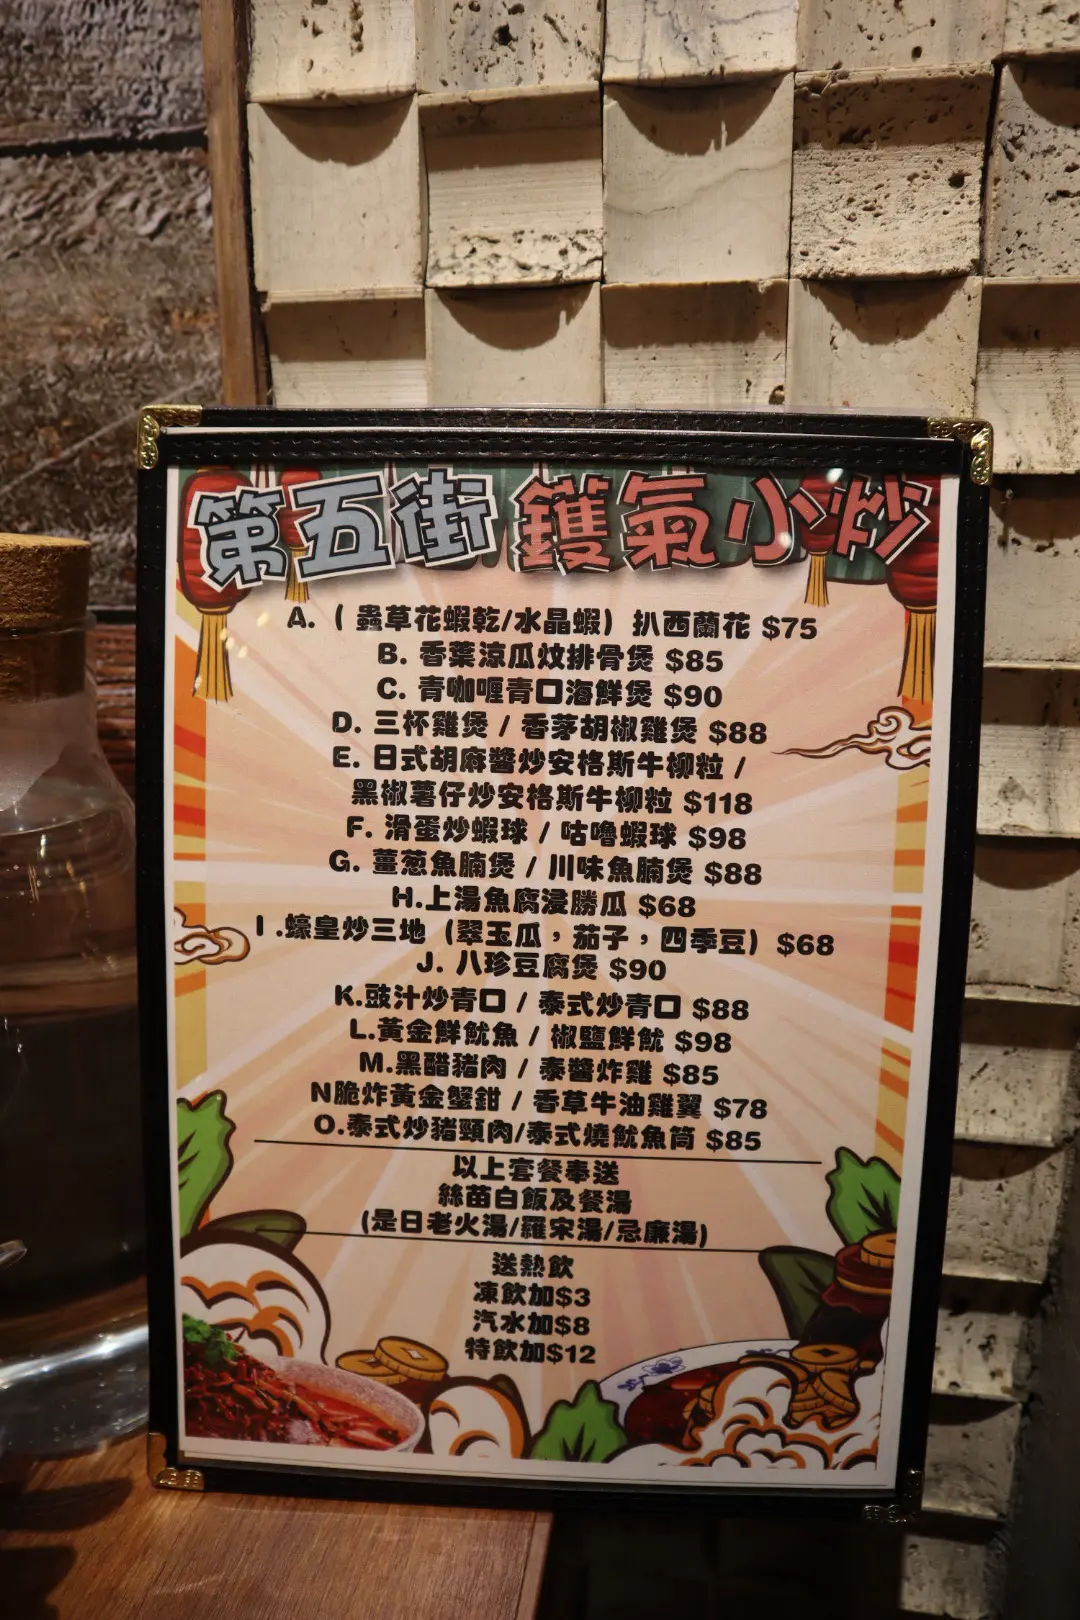 第五街 鑊氣小炒
A. ( 蟲草花蝦乾/水晶蝦) 扒西蘭花 $75
B. 香葉涼瓜炆排骨煲 $85
C. 青咖喱青口海鮮煲 $90
D. 三杯雞煲 / 香茅胡椒雞煲 $88
E. 日式胡麻醬炒安格斯牛柳粒 /
黑椒薯仔炒安格斯牛柳粒 $118
F. 滑蛋炒蝦球 / 咕嚕蝦球 $98
G. 薑葱魚腩煲 / 川味魚腩煲 $88
H.上湯魚腐浸勝瓜 $68
I .蠔皇炒三地 (翠玉瓜，茄子，四季豆) $68
J. 八珍豆腐煲 $90
K.豉汁炒青口 / 泰式炒青口 $88
L.黃金鮮魷魚 / 椒鹽鮮魷 $98
M.黑醋豬肉 / 泰醬炸雞 $85
N脆炸黃金蟹鉗 / 香草牛油雞翼 $78
O.泰式炒豬頸肉/泰式燒魷魚筒 $85
以上套餐奉送
絲苗白飯及餐湯
(是日老火湯/羅宋湯/忌廉湯)
送熱飲
凍飲加$3
汽水加$8
特飲加$12